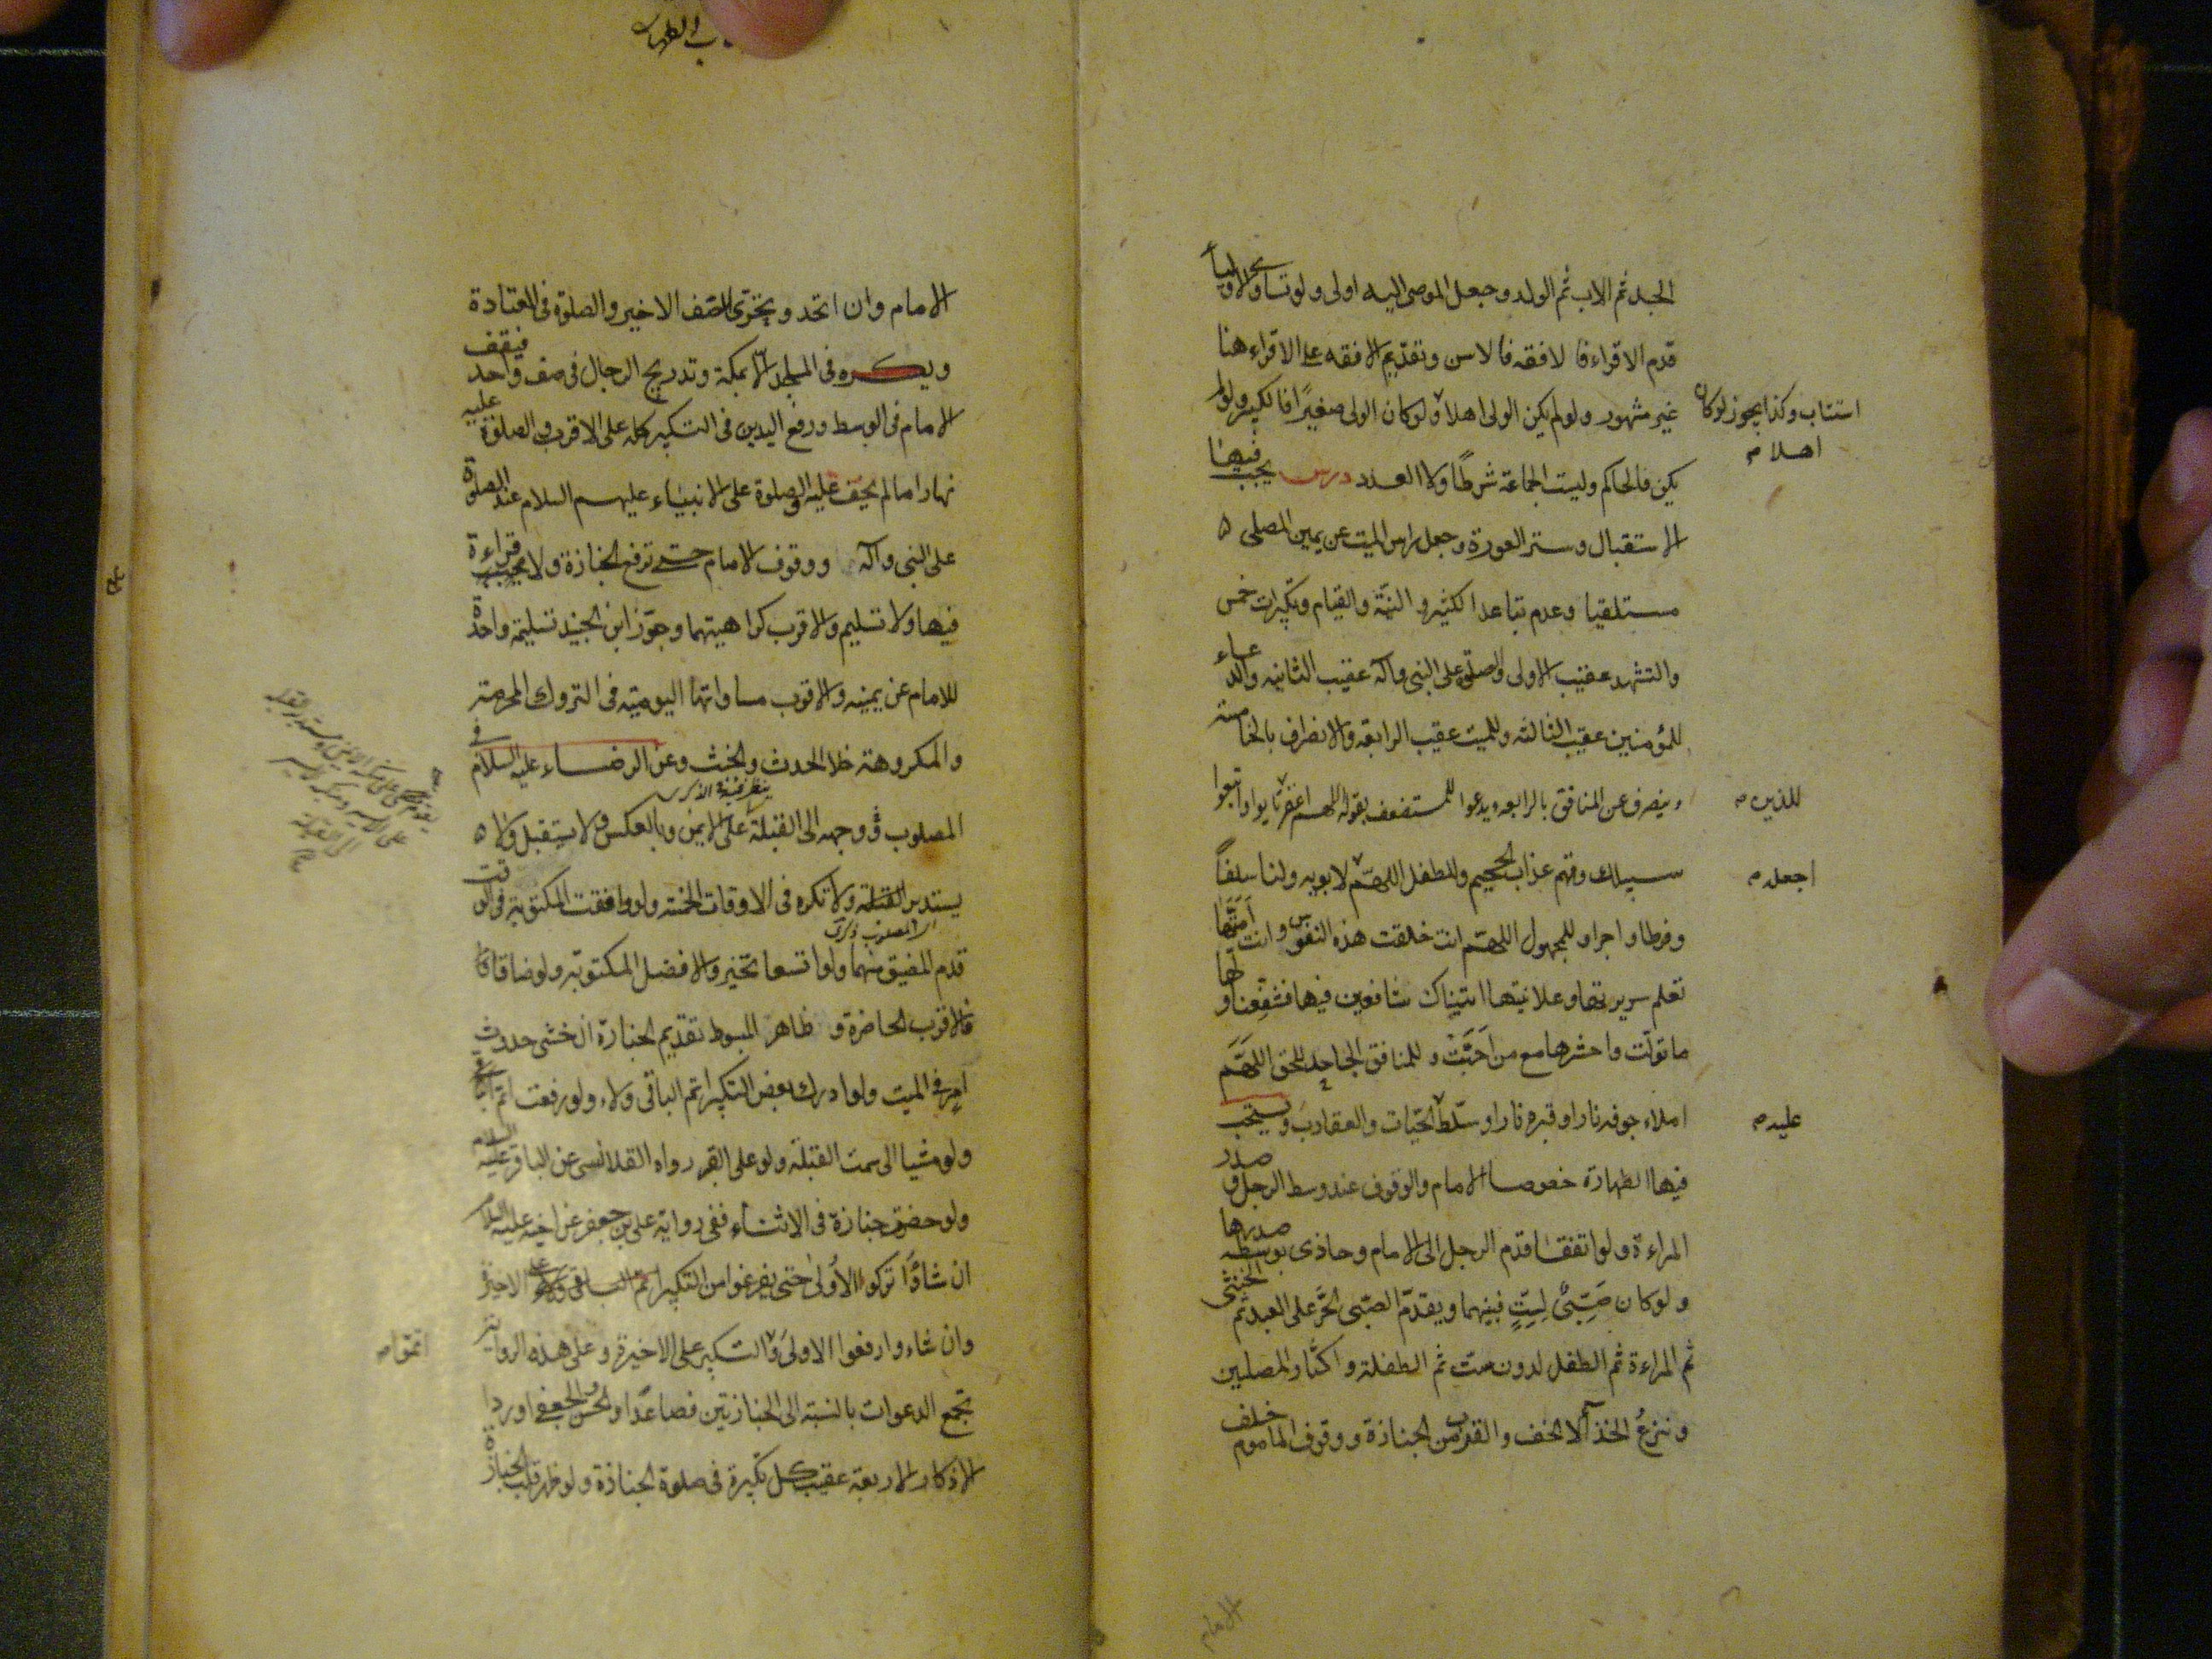 الجد ثم الاب ثم الولد وجعل الموصى اليه اولى ولو تساوى الاولياء
قدم الاقراء فالافقه فالاسن وتقديم الافقه على الاقراء هنا
غير مشهور ولو لم يكن الولى اهلا ولو كان الولى صغيرًا فالكبير ولو لم
استناب وكذا يجوز لو كان
اهلا م
يكن فالحاكم وليست الجماعة شرطًا ولا العدد درس يجب فيها
الاستقبال وستر العورة وجعل راس الميت عن يمين المصلى ه
مستلقيا وعدم تباعد الكثير والنيّة والقيام وتكبيرات خمس
والتشهد عقيب الاولى والصلوة على النبى وآله عقيب الثانيه والدعاء
للمؤمنين عقيب الثالثه وللميت عقيب الرابعه والانصراف بالخامسه
وينصرف عن المنافق بالرابعه ويدعوا للمستضعف بقوله اللهم اغفر تابوا واتبعوا
للذين م
سبيلك وقهم عذاب الجحيم وللطفل اللهمّ لابويه ولنا سلفاً
اجعله م
وفرطا واجرا وللمجهول اللهمّ انت خلقت هذه النفوس وانت امتّها
تعلم سريرتها وعلانيتها اتيناك شافعين فيها فشفّعنا ولها
ما تولّت واحشرها مع من احبّت وللمنافق الجاحد للحق اللهمّ
املاء جوفه نارا وقبره نارا وسلّط الحيّات والعقارب ويستحب
عليه م
فيها الطهارة خصوصا الامام والوقوف عند وسط الرجل وصدر
المراءة ولو اتفقا قدم الرجل الى الامام وحاذى بوسطه صدرها
ولو كان صبىّ لستّ فبينهما ويقدّم الصبى الحرّ على العبد ثم الخنثى
ثم المراءة ثم الطفل لدون ست ثم الطفلة واكثار المصلين
ونزعُ الحذآء لا الخف والقرب من الجنازة ووقوف الماموم خلف
الامام
الامام وان اتحد وتحرّى الصّف الاخير والصلوة فى المعتادة
ويكره فى المساجد الّا بمكة وتدريج الرجال فى صف واحد فيقف
الامام فى الوسط ورفع اليدين فى التكبير كله على الاقرب والصلوة عليه
نهارا ما لم يخف عليه والصلوة على الانبياء عليهم السلام عند الصلوة
على النبى وآله ووقوف الامام حتى ترفع الجنازة ولا يجب قراءة
فيها ولا تسليم والاقرب كراهيتهما وجوّز ابن الجنيد تسليمة واحدة
للامام عن يمينه والاقرب مساواتها اليومّيه فى التروك المحرمة
والمكروهة خلا الحدث والخبث وعن الرضاء عليه السلام فى
المصلوب ان وجهه الى القبلة على الايمن وبالعكس ولا يستقبل ولا ه
يستدبر القبلة ولا تكره فى الاوقات الخمسة ولو وافقت المكتوبة فى الوقت
قدم المضيق منهما ولو اتسعا تخير والافضل المكتوبة ولو ضاقا
فالاقرب الحاضرة وظاهر المبسوط تقديم الجنازة ان خشى حدوث
امر فى الميت ولو ادرك بعض التكبير اتم الباقى ولاء ولو رفعت اتم
ولو مشيا الى سمت القبلة ولو على القبر رواه القلانسى عن الباقر عليه السلام
ولو حضرت جنازة فى الاثناء ففى رواية على بن جعفر عن اخيه عليه السلام
ان شاؤا تركوا الاولى حتى يفرغوا من التكبير على الاخيرة
وان شاءوا رفعوا الاولى والتكبير على الاخيرة وعلى هذه الرواية
اتموا م
تجمع الدعوات بالنسبة الى الجنازتين فصاعدًا والجعفى اورد
الاذكار الاربعة عقيب كل تكبيرة فى صلوة الجنازة ولو ظهر قلب الجنازة